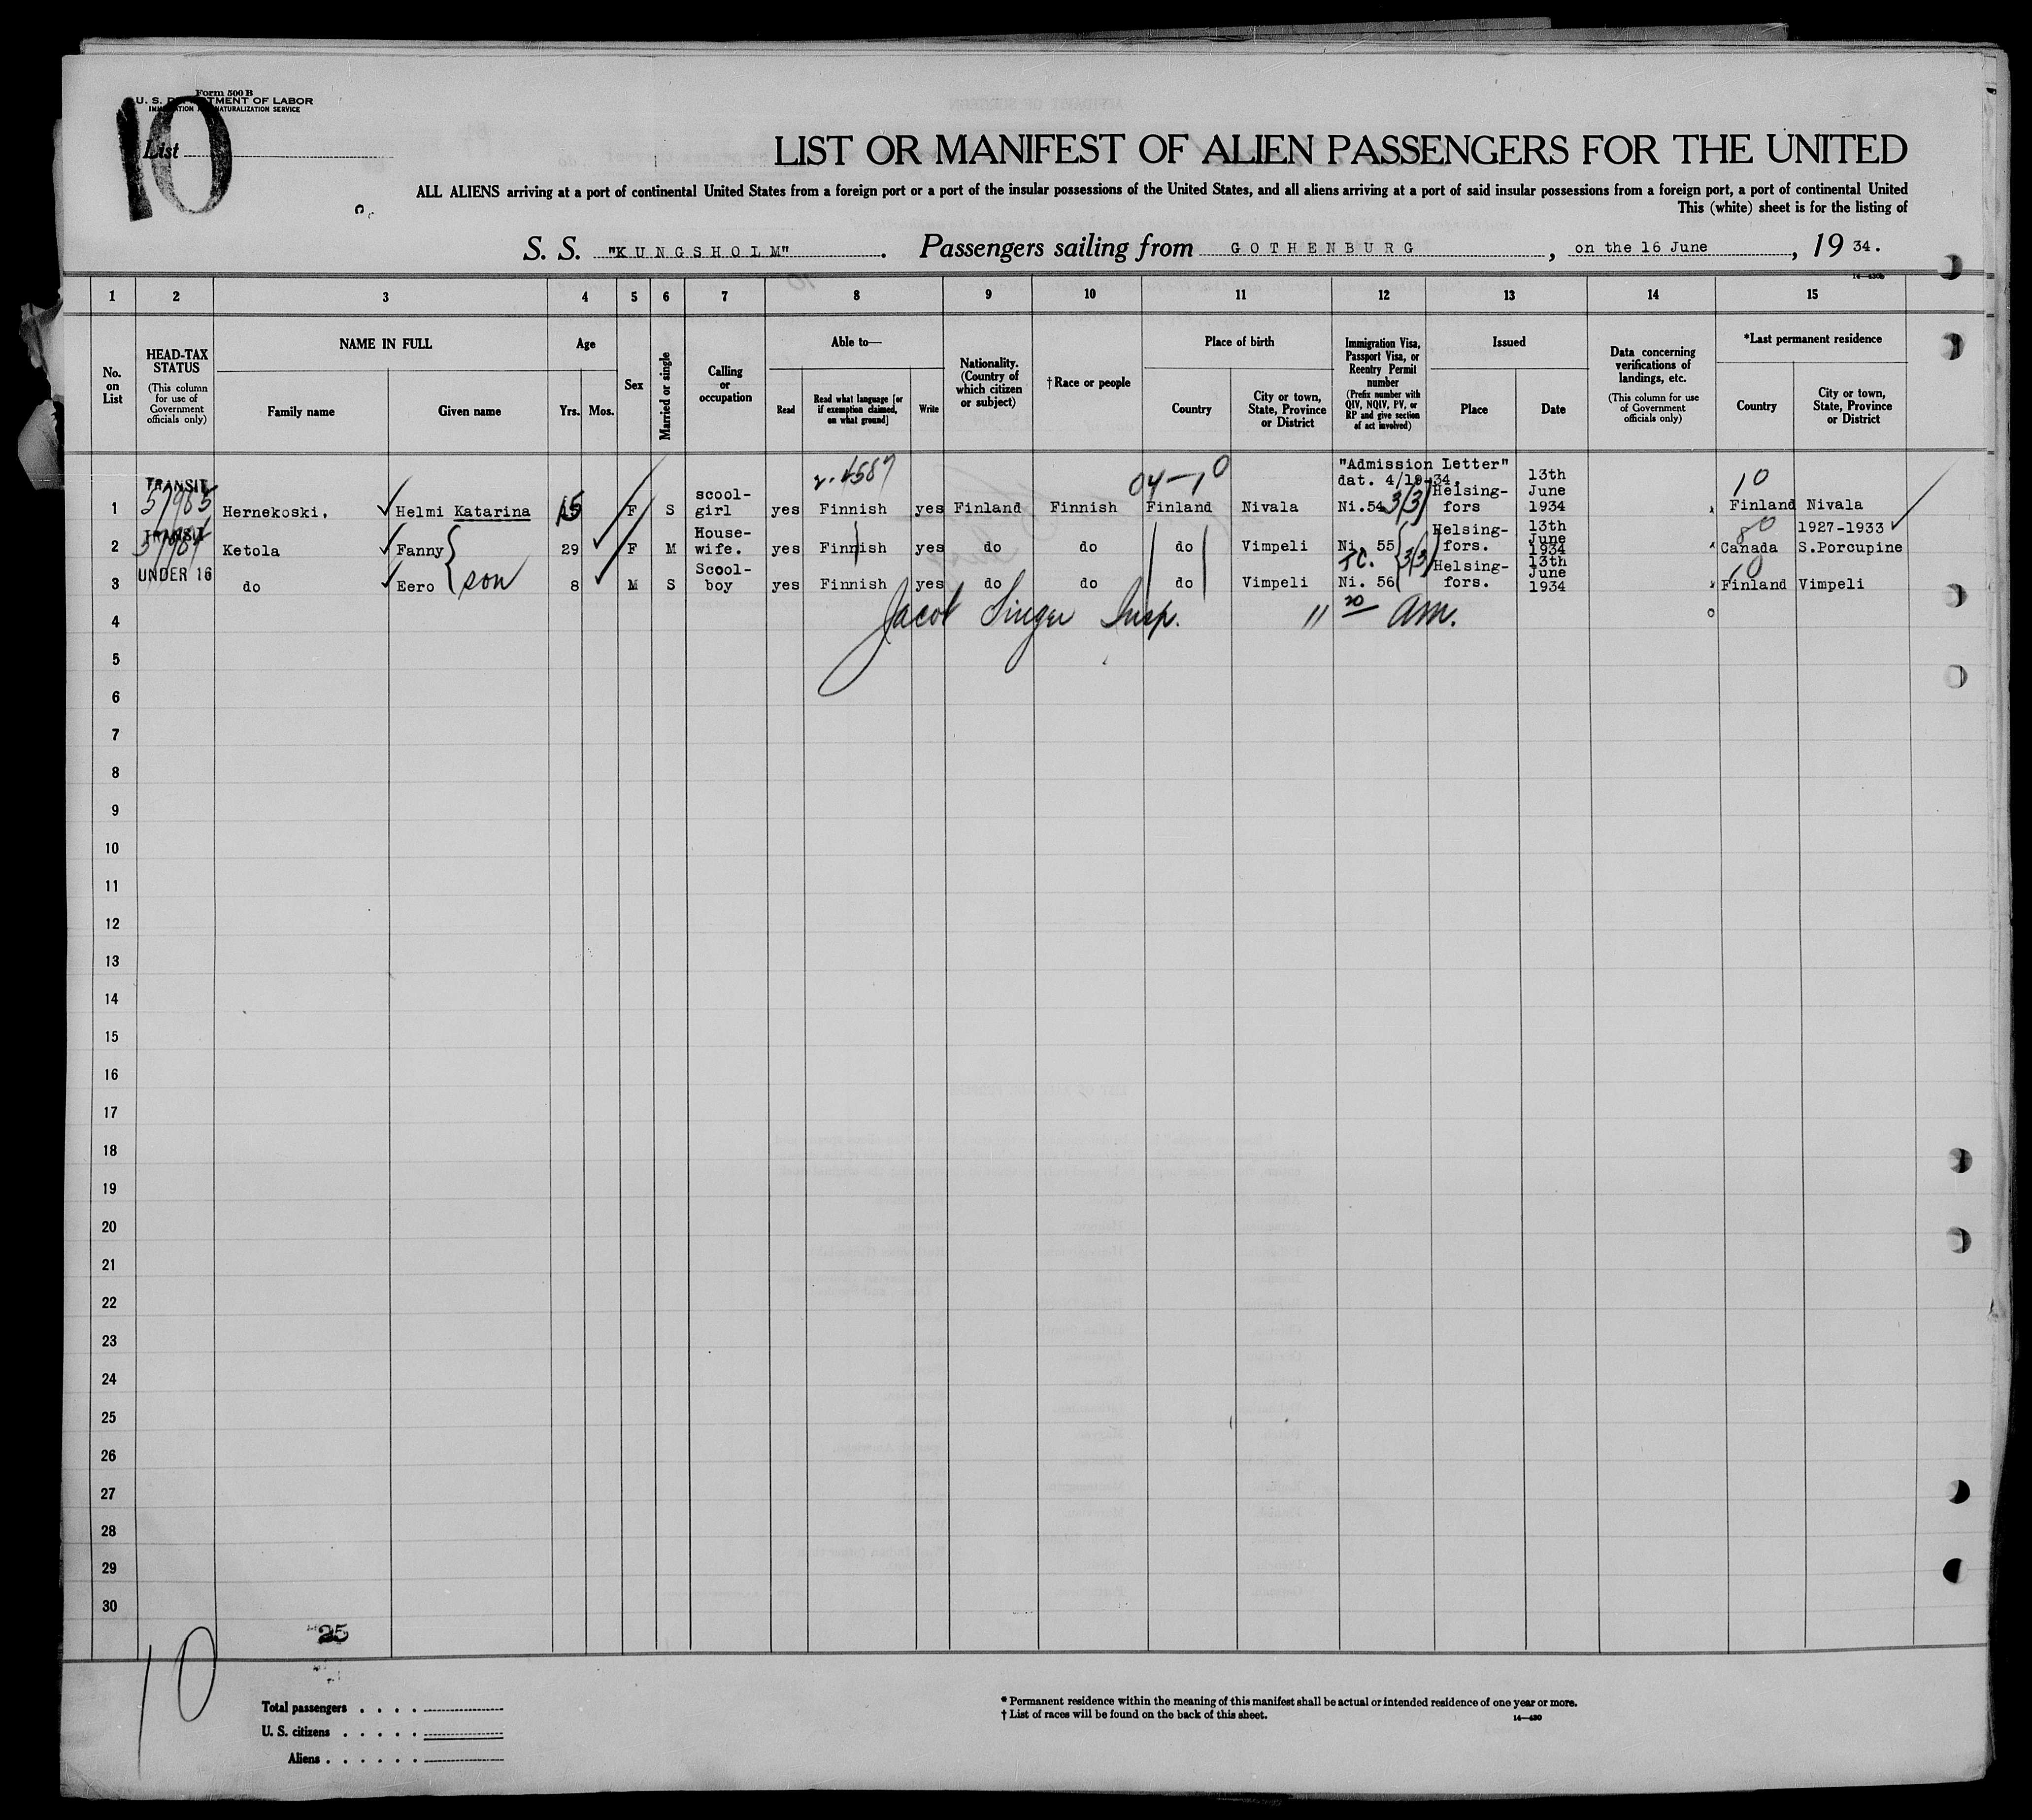 Form 500 B
U. S. DEPARTMENT OF LABOR
IMMIGRATION AND NATURALIZATION SERVICE
10
List
LIST OR MANIFEST OF ALIEN PASSENGERS FOR THE UNITED
ALL ALIENS arriving at a port of continental United States from a foreign port or a port of the insular possessions of the United States, and all aliens arriving at a port of said insular possessions from a foreign port, a port of continental United
This (white) sheet is for the listing of
S. S. "KUNGSHOLM". Passengers sailing from GOTHENBURG, on the 16 June, 19 34.
14-430b
1 2 3 4 5 6 7 8 9 10 11 12 13 14 15
No. on List
HEAD-TAX STATUS (This column for use of Government officials only)
NAME IN FULL
Family name
Given name
Age
Yrs.
Mos.
Sex
Married or single
Calling or occupation
Able to—
Read
Read what language [or if exemption claimed, on what ground]
Write
Nationality. (Country of which citizen or subject)
†Race or people
Place of birth
Country
City or town, State, Province or District
Immigration Visa, Passport Visa, or Reentry Permit number (Prefix number with QIV, NQIV, PV, or RP and give section of act involved)
Issued
Place
Date
Data concerning verifications of landings, etc. (This column for use of Government officials only)
*Last permanent residence
Country
City or town, State, Province or District
"Admission Letter"
04-10
10
1 TRANSIT Hernekoski, Helmi Katarina 15 F S scool-girl yes Finnish yes Finland Finnish Finland Nivala Ni.54 3(3) Helsing-fors 13th June 1934 Finland Nivala
80 1927-1933
2 TRANSIT Ketola Fanny 29 F M House-wife. yes Finnish yes do do do Vimpeli Ni. 55 3(3) Helsing-fors. 13th June 1934 Canada S.Porcupine
10
3 UNDER 16 do Eero son 8 M S Scool-boy yes Finnish yes do do do Vimpeli Ni. 56 Helsing-fors. 13th June 1934 Finland Vimpeli
4 Jacob Singer Insp. 11 20 am.
5
6
7
8
9
10
11
12
13
14
15
16
17
18
19
20
21
22
23
24
25
26
27
28
29
30
25
10
Total passengers . . . .
U. S. citizens . . . . .
Aliens . . . . . .
* Permanent residence within the meaning of this manifest shall be actual or intended residence of one year or more.
† List of races will be found on the back of this sheet.
14-430